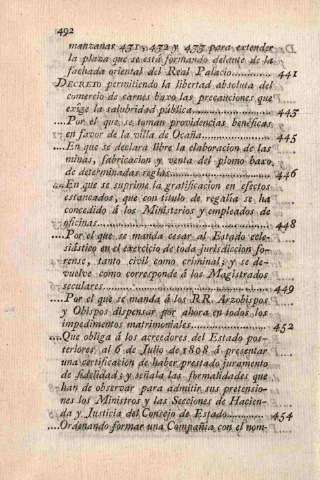 492
manzanas 431, 432 y 433 para extender
la plaza que se está formando delante de la
fachada oriental del Real Palacio............ 441
DECRETO permitiendo la libertad absoluta del
comercio de carnes baxo las precauciones que
exîge la salubridad pública.................. 443
....Por el que se toman providencias benéficas
en favor de la villa de Ocaña................ 445
....En que se declara libre la elaboracion de las
minas, fabricacion y venta del plomo baxo
de determinadas reglas....................... 446
....En que se suprime la gratificacion en efectos
estancados, que con título de regalía se ha
concedido á los Ministerios y empleados de
oficinas..................................... 448
....Por el que se manda cesar al Estado ecle-
siástico en el exercicio de toda jurisdiccion fo-
rense, tanto civil como criminal; y se de-
vuelve como corresponde á los Magistrados
seculares.................................... 449
....Por el que se manda á los RR. Arzobispos
y Obispos dispensar por ahora en todos los
impedimentos matrimoniales................... 452
....Que obliga á los acreedores del Estado pos-
teriores al 6 de Julio de 1808 á presentar
una certificacion de haber prestado juramento
de fidelidad; y señala las formalidades que
han de observar para admitir sus pretensio-
nes los Ministros y las Secciones de Hacien-
da y Justicia del Consejo de Estado.......... 454
....Ordenando formar una Compañía con el nom-